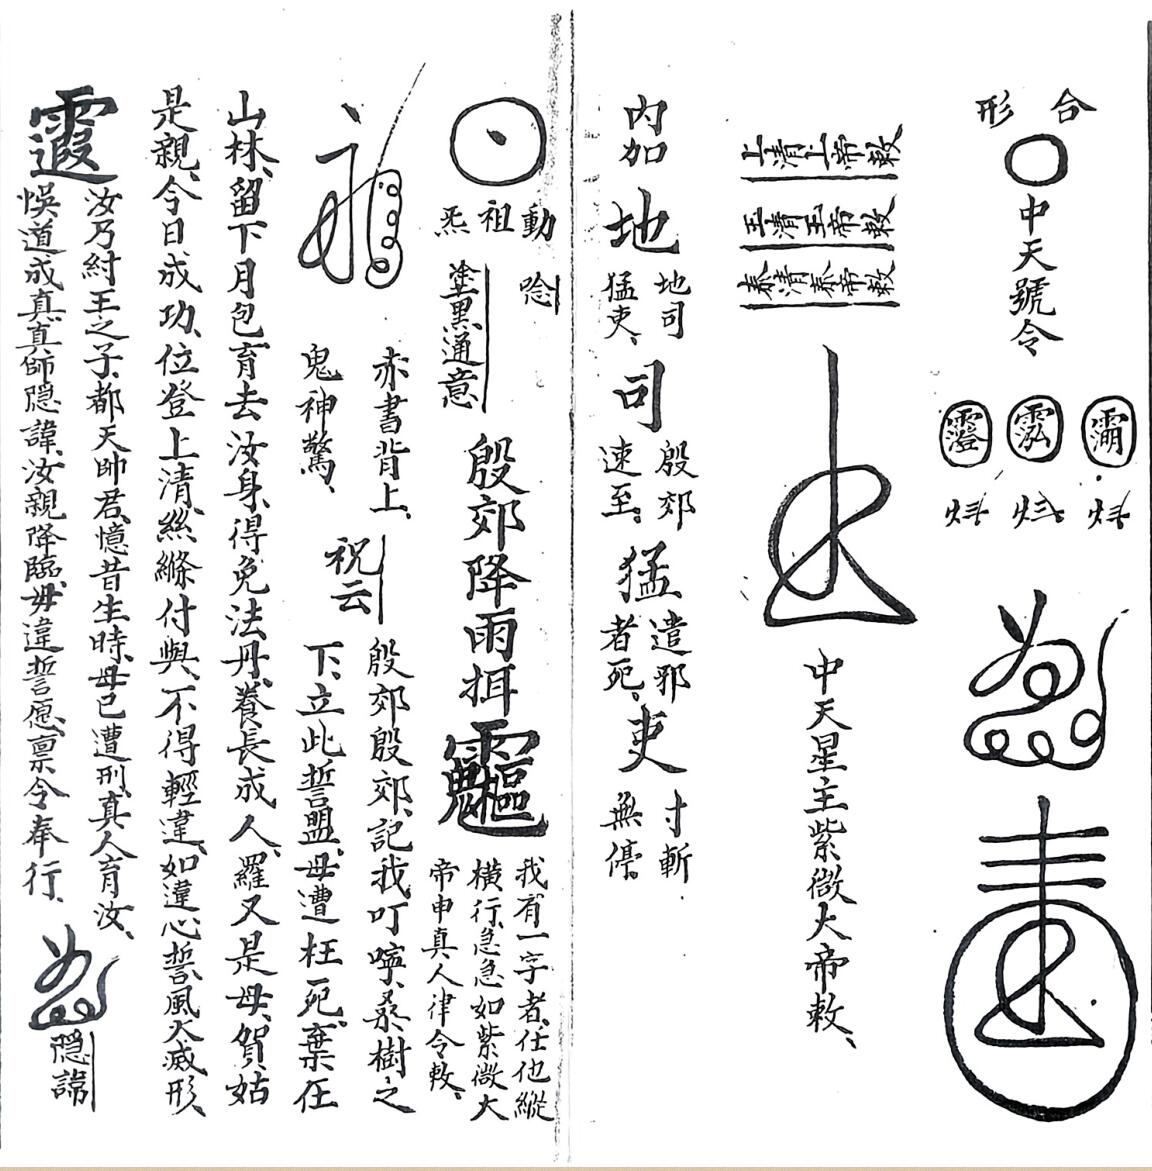 合形
中天號令
上清上帝敕
玉清玉帝敕
泰清泰帝敕
中天星主紫微大帝敕、
內加
地
地司猛吏、
司
殷郊速至、
猛
遣邪者死、
吏
寸斬無停
動祖炁
唸
塗黑通意
殷郊降雨挕
我有一字者、任他縱
橫行、急急如紫微大
帝申真人律令敕、
赤書背上、
鬼神驚、
祝云
殷郊殷郊、記我叮嚀、桑樹之
下、立此誓盟、母遭枉死、棄在
山林、留下月包育去汝身、得免法丹、養長成人、羅叉是母、賀姑
是親、今日成功、位登上清、絲縧付與、不得輕違、如違心誓、風火滅形、
汝乃紂王之子、都天帥君、憶昔生時、母已遭刑、真人育汝、
悮道成真、真師隱諱、汝親降臨、毋違誓愿、禀令奉行、
隱諱